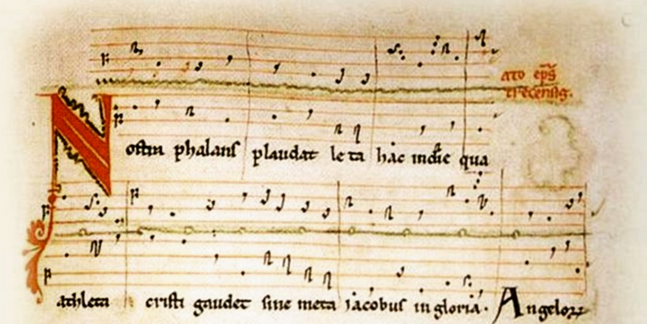 ato eps
trecensis.
Nostra phalans plaudat leta hac in die qua
athleta cristi gaudet sine meta iacobus in gloria. Angelorum